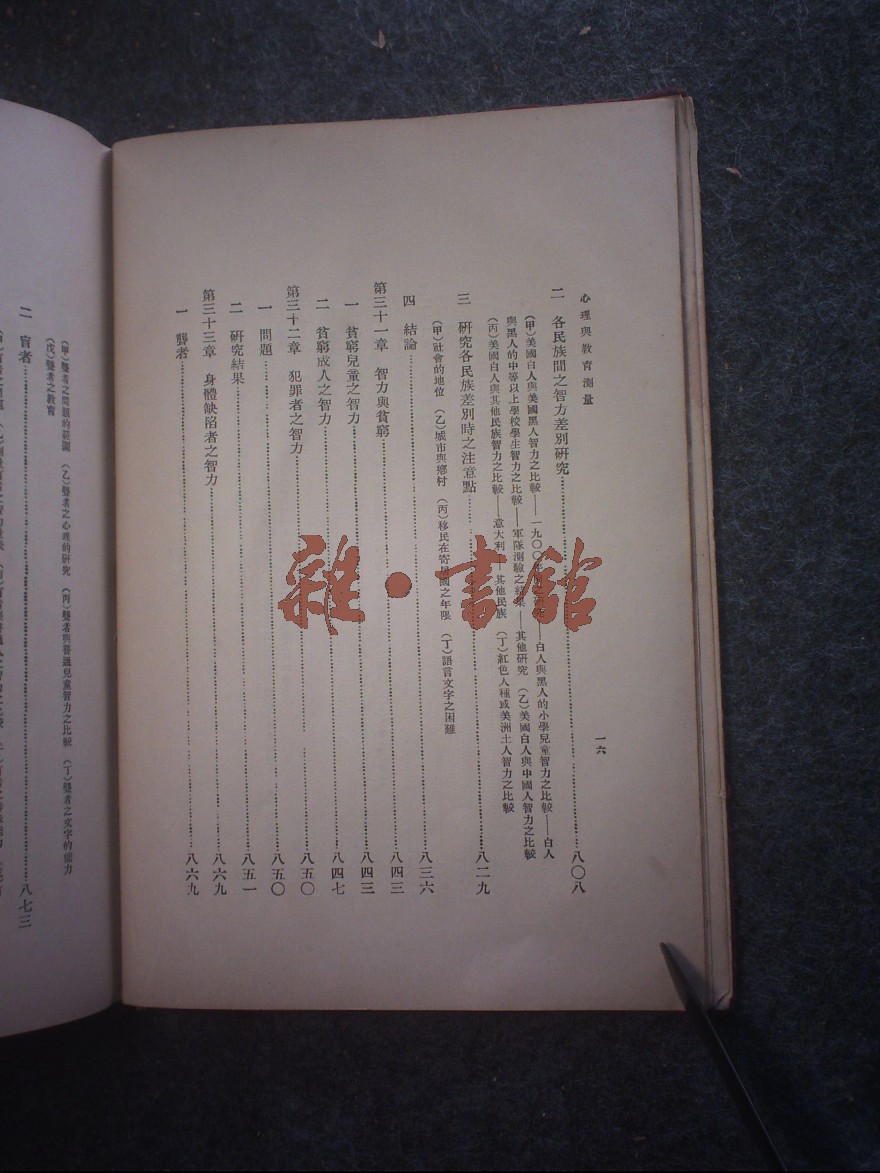 心理與教育測量
一六
二 各民族間之智方差別研究……八〇八
(甲)美國白人與美國黑人智力之比較——一九〇〇年 ——白人與黑人的小學兒童智力之比較——白人
與黑人的中等以上學校學生智力之比較——軍隊測驗之結果——其他研究 (乙)美國白人與中國人智力之比較
(丙)美國白人與其他民族智力之比較——意大利——其他民族 (丁)紅色人種或美洲土人智力之比較
三 研究各民族差別時之注意點……八二九
(甲)社會的地位 (乙)城市與鄉村 (丙)移民在寄居國之年限 (丁)語言文字之困難
四 結論……八三六
第三十一章 智力與貧窮……八四三
一 貧窮兒童之智力……八四三
二 貧窮成人之智力……八四七
第三十二章 犯罪者之智力……八五〇
一 問題……八五〇
二 研究結果……八五一
第三十三章 身體缺陷者之智力……八六九
一 聾者……八六九
(甲)聾者之問題的範圍 (乙)聾者之心理的研究 (丙)聾者與普通兒童智力之比較 (丁)聾者之文字的能力
(戊)聾者之教育
二 盲者……八七三
雜·書館